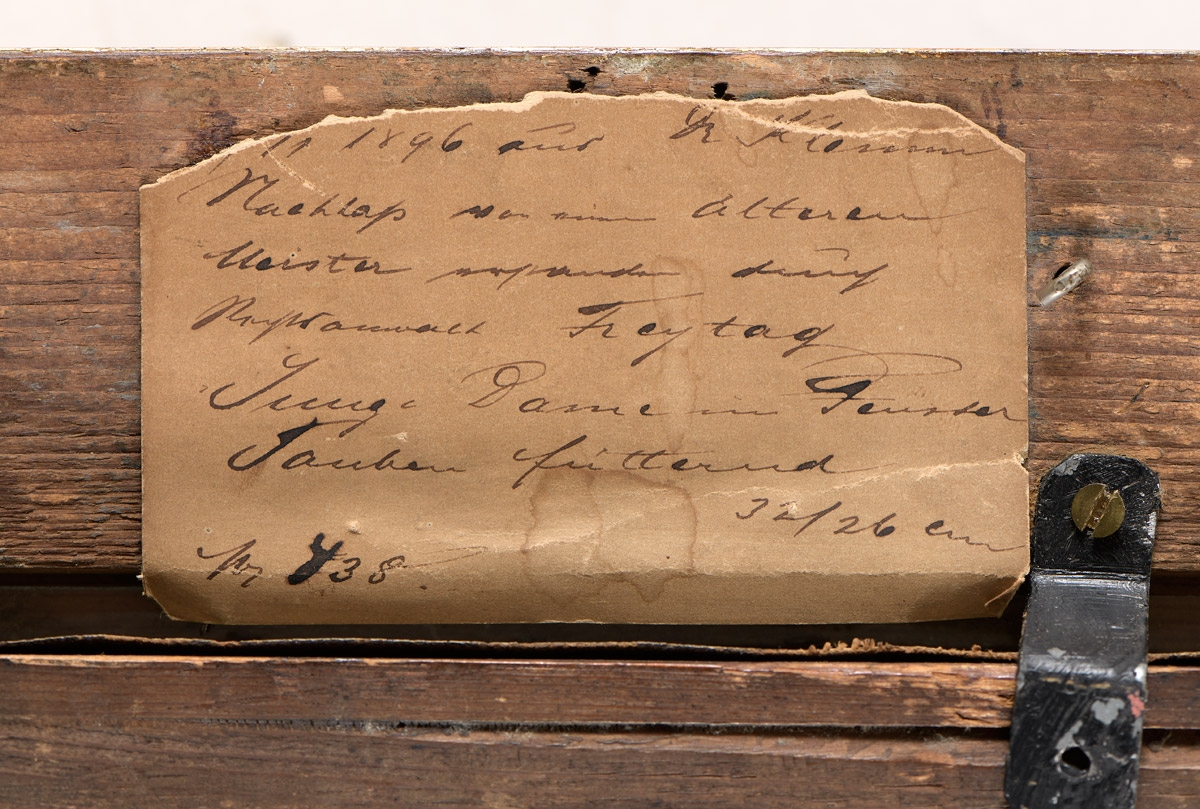 11 1896 aus Dr Klemm
Nachlaß von einem älteren
Meister erstanden durch
Rechtsanwalt Freytag
Junge Dame im Fenster
Tauben fütternd
32/26 cm
No 438.